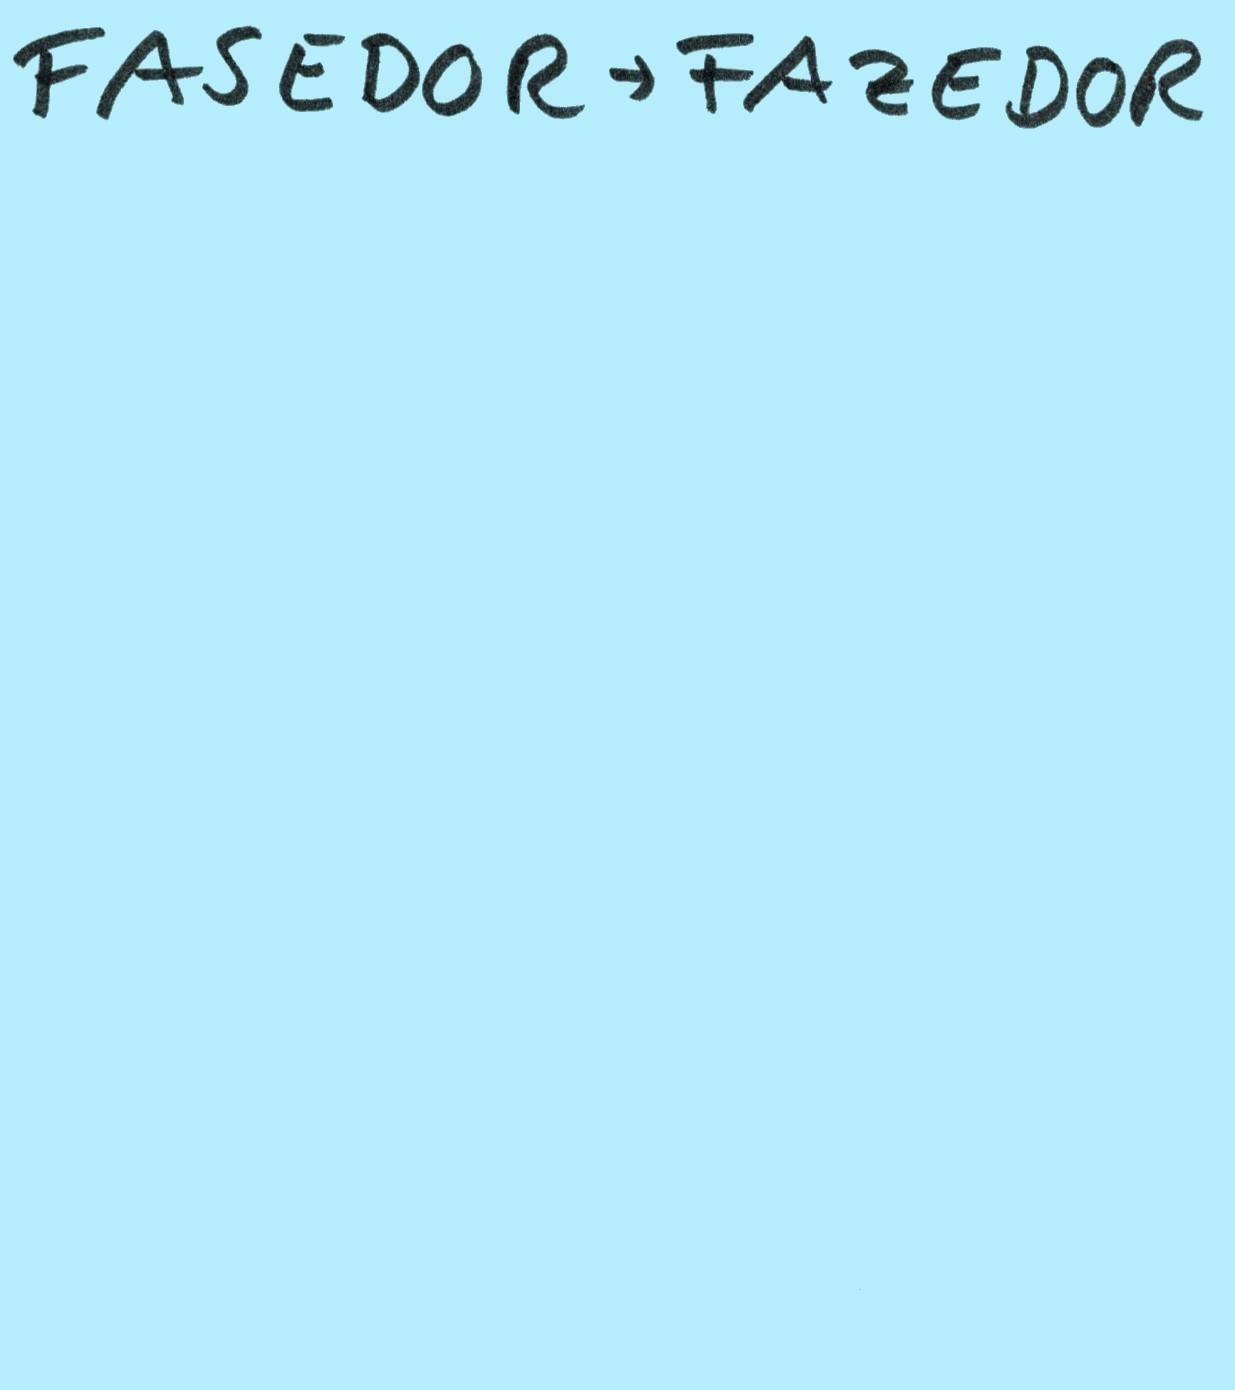 FASEDOR → FAZEDOR